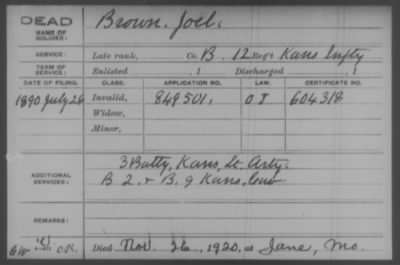 DEAD
NAME OF SOLDIER: Brown, Joel.
SERVICE: Late rank, Co. B, 12 Reg't Kans Infty
TERM OF SERVICE: Enlisted , 1 Discharged , 1
DATE OF FILING. CLASS. APPLICATION NO. LAW. CERTIFICATE NO.
1890 July 26 Invalid, 849501. O J 604318
Widow,
Minor,
3 Batty. Kans. Lt. Arty.
ADDITIONAL SERVICES: B 2. & B. 9 Kans. Cav
REMARKS:
Died Nov. 26, 1920, at Jane, Mo.